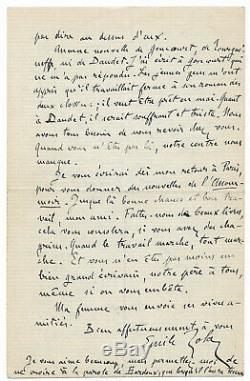 pas dire au dessus d'eux.
Aucune nouvelle de Goncourt, de Tourgué-
neff, ni de Daudet. J'ai écrit à Goncourt qui
ne m'a pas répondu. Les jeunes gens m'ont
appris qu'il travaillait ferme à son roman des
deux clowns; il veut être prêt en mai. Quant
à Daudet, il serait souffrant et triste. Nous
avons tous besoin de vous revoir chez vous.
Quand vous n'êtes pas là, notre centre nous
manque.
Je vous écrirai dès mon retour à Paris,
pour vous donner des nouvelles de l'Assom-
moir. Jusque là bonne chance et bon tra-
vail, mon ami. Faites-nous de beaux livres,
cela vous consolera, si vous avez du cha-
grin. Quand le travail marche, tout mar-
che. Et vous n'en êtes pas moins un
bien grand écrivain, notre père à tous,
même si on vous embête.
Ma femme vous envoie ses vives a-
mitiés.
Bien affectueusement à vous
Emile Zola
Je vous aime beaucoup, mais permettez-moi de